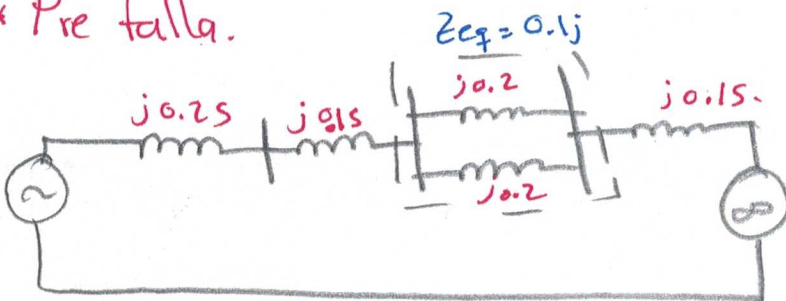 * Pre falla.
Zeq = 0.1j
j0.25
j0.15
j0.2
j0.15.
j0.2
~
∞